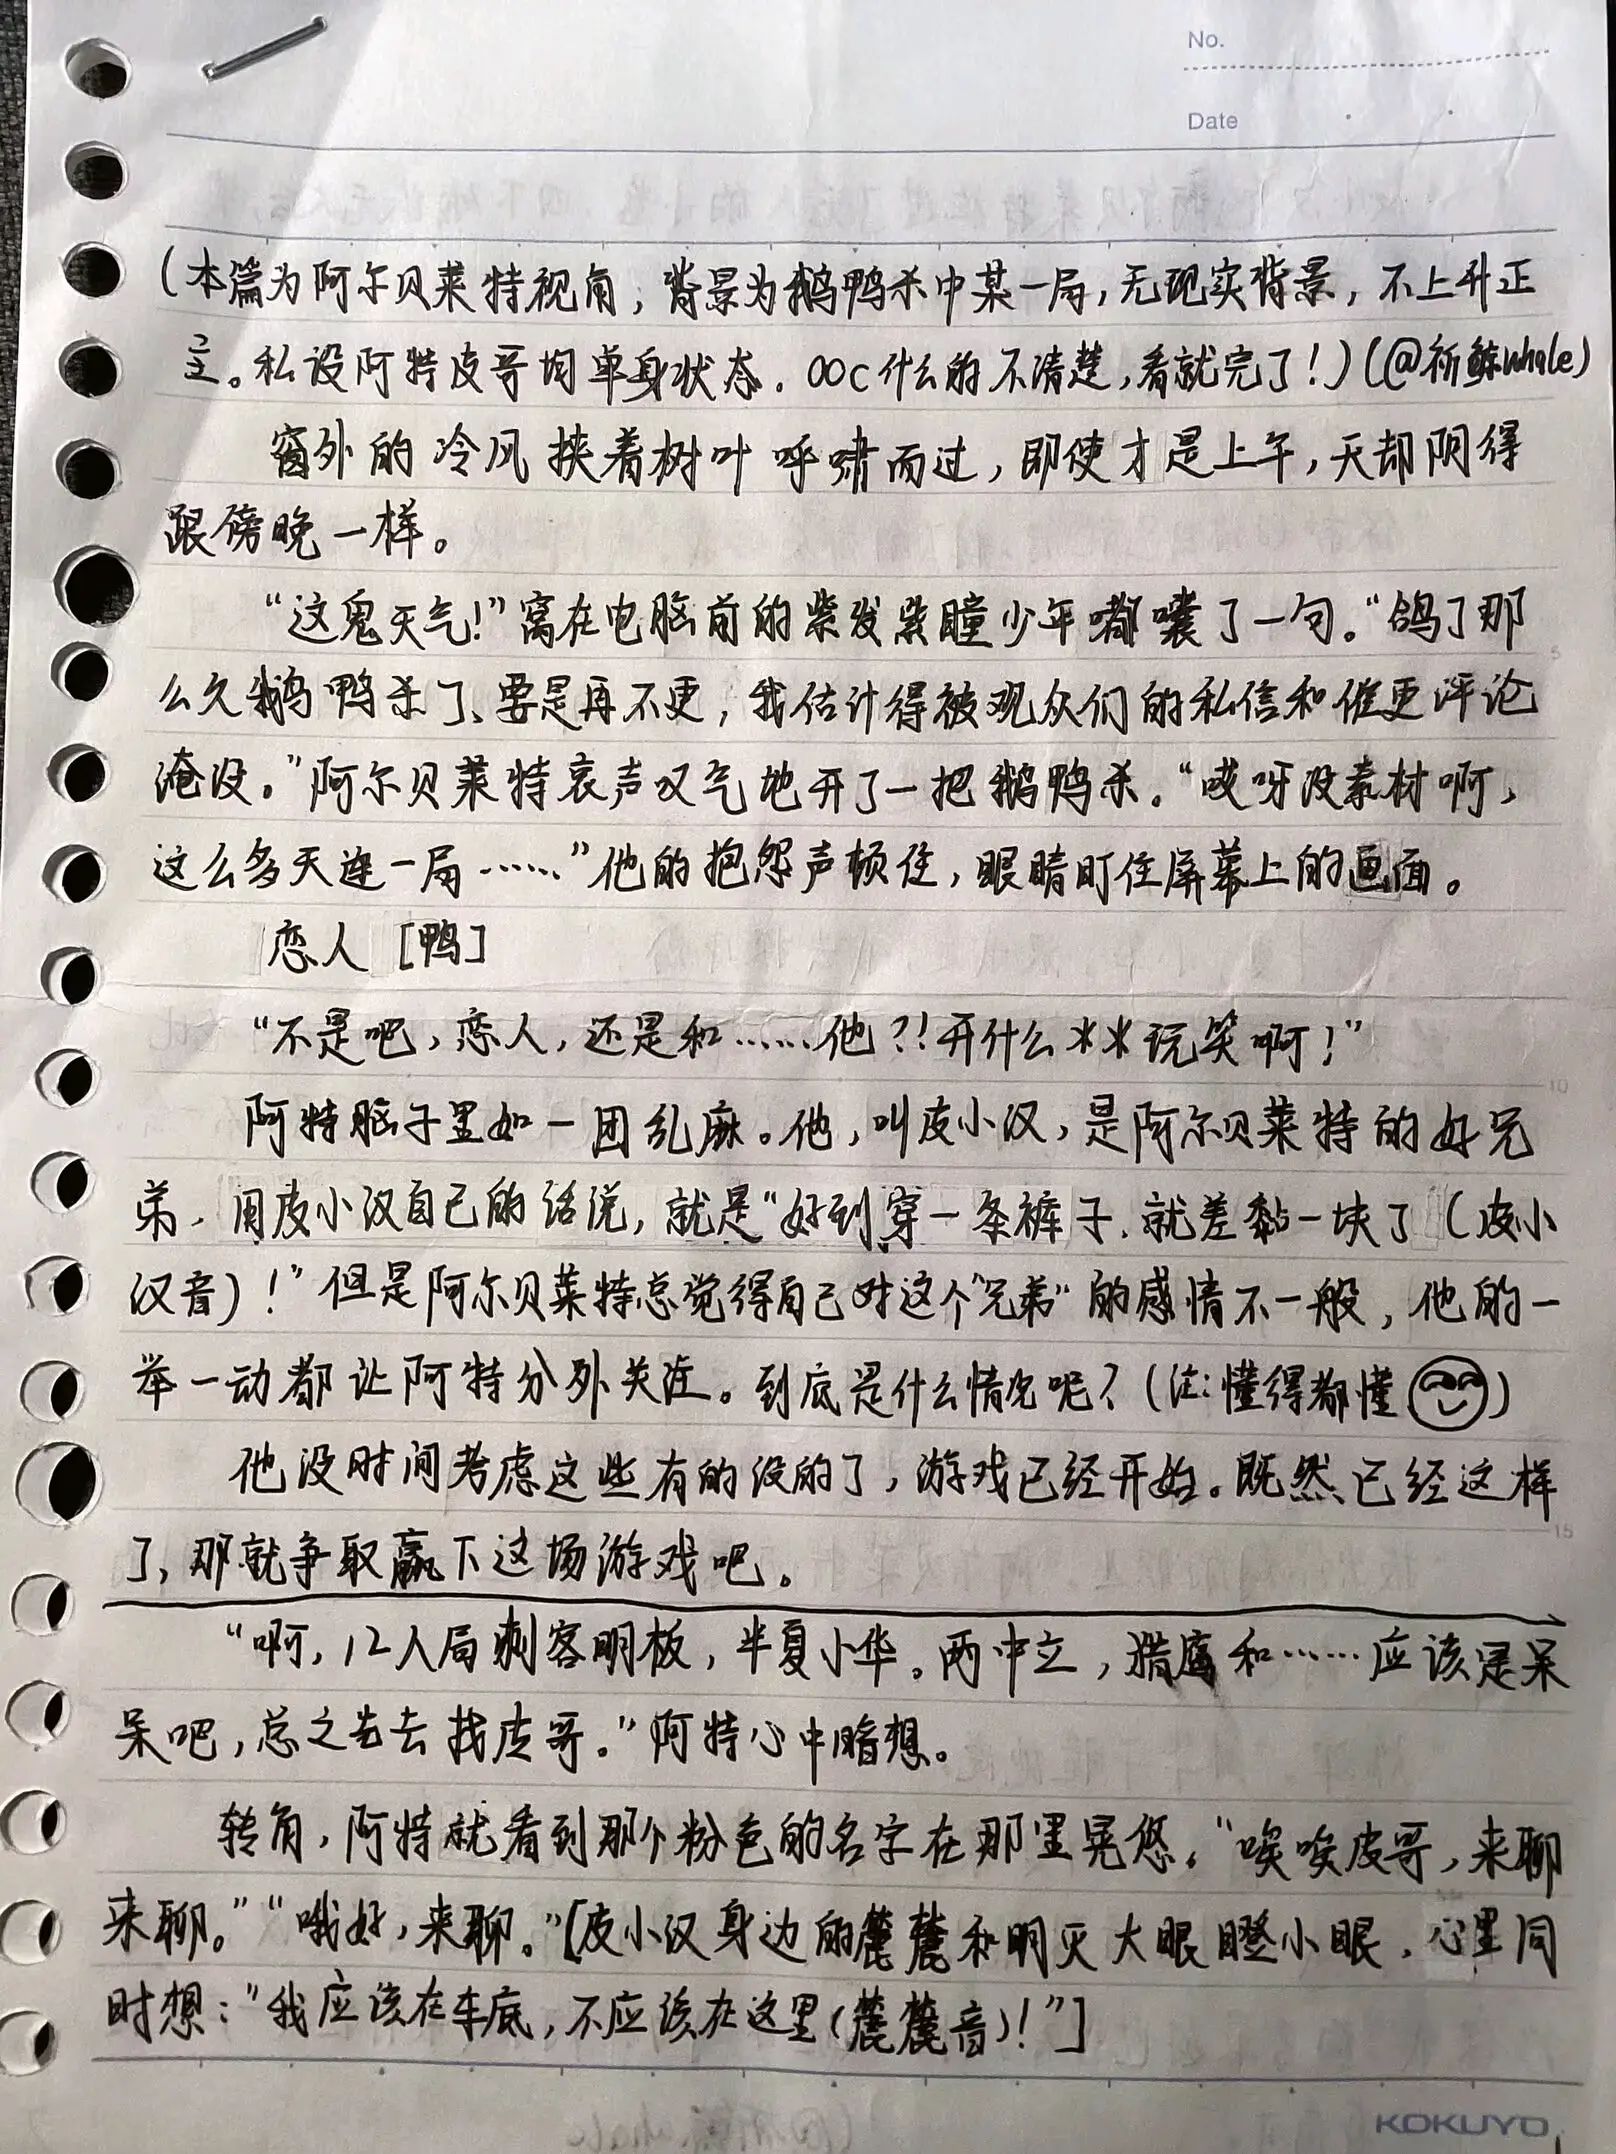 No.
Date
(本篇为阿尔贝莱特视角，背景为鹅鸭杀中某一局，无现实背景，不上升正
主。私设阿特皮哥均单身状态，OOC什么的不清楚，看就完了！)(@祈鲸whale)
窗外的冷风挟着树叶呼啸而过，即使才是上午，天却阴得
跟傍晚一样。
“这鬼天气！”窝在电脑前的紫发紫瞳少年嘟囔了一句。“鸽了那
么久鹅鸭杀了，要是再不更，我估计得被观众们的私信和催更评论
淹没。”阿尔贝莱特哀声叹气地开了一把鹅鸭杀。“哎呀没素材啊，
这么多天连一局……”他的抱怨声顿住，眼睛盯住屏幕上的画面。
恋人 [鸭]
“不是吧，恋人，还是和……他？！开什么**玩笑啊！”
阿特脑子里如一团乱麻。他，叫皮小汉，是阿尔贝莱特的好兄
弟，用皮小汉自己的话说，就是“好到穿一条裤子，就差黏一块了（皮小
汉音）！”但是阿尔贝莱特总觉得自己对这个“兄弟”的感情不一般，他的一
举一动都让阿特分外关注。到底是什么情况呢？（注：懂得都懂）
他没时间考虑这些有的没的了，游戏已经开始。既然已经这样
了，那就争取赢下这场游戏吧。
“啊，12人局刺客明板，半夏小华。两中立，猎鹰和……应该是呆
呆吧，总之先去找皮哥。”阿特心中暗想。
转角，阿特就看到那个粉色的名字在那里晃悠。“唉唉皮哥，来聊
来聊。”“哦好，来聊。”[皮小汉身边的麓麓和明灭大眼瞪小眼，心里同
时想：“我应该在车底，不应该在这里（麓麓音）！”]
KOKUYO